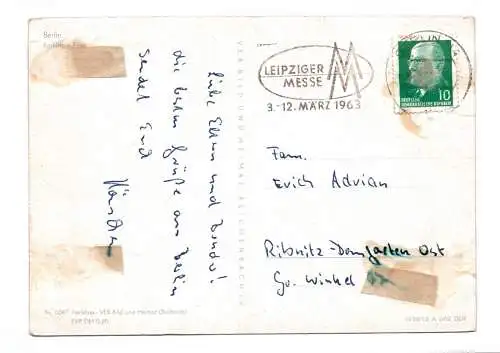 Berlin
Liebe Eltern und Bruder!
die besten Grüße aus Berlin
sendet Euch
VEB BILD UND HEIMAT REICHENBACH I.V.
LEIPZIGER
MESSE
3.-12. MÄRZ 1963
BERLIN
10
DEUTSCHE
DEMOKRATISCHE REPUBLIK
Fam.
Erich Adrian
Ribnitz-Damgarten Ost
Gr. Winkel
VEB Bild und Heimat